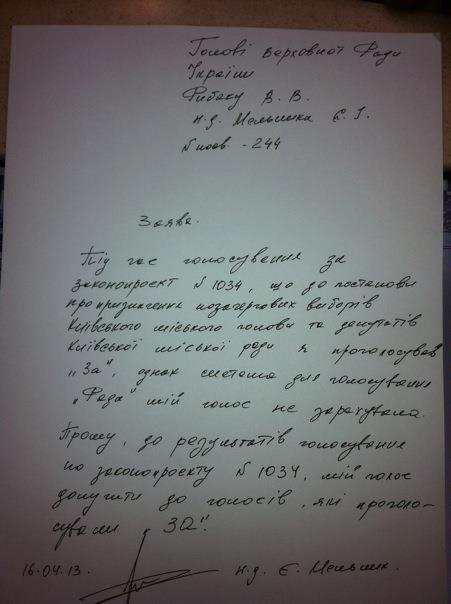 Голові Верховної Ради
України
Рибаку В. В.
н.д. Мельника С. І.
N посв. - 244
Заява.
Під час голосування за
законопроект N 1034, що до постанови
про призначення позачергових виборів
Київського міського голови та депутатів
Київської міської ради я проголосував
„За", однак система для голосування
„Рада" мій голос не зарахувала.
Прошу, до результатів голосування
по законопроекту N 1034, мій голос
долучити до голосів, які проголо-
сували „ЗА".
16.04.13. н.д. Є. Мельник.